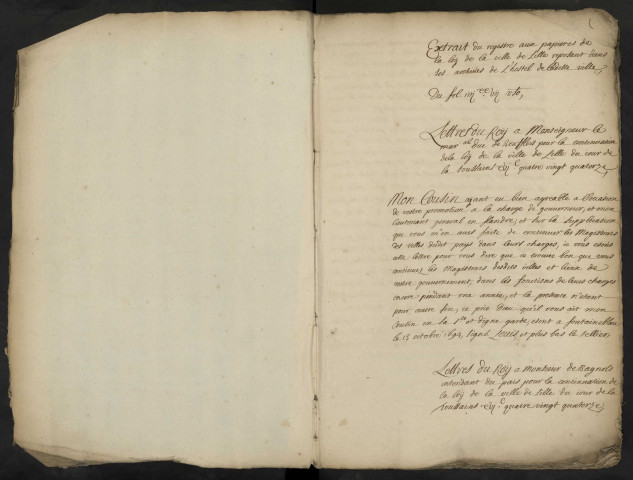 Extrait du registre aux papiers de
la loy de la ville de Lille reposant dans
les archives de L'hostel de ladite ville,
Du fol. iiij xx vij vso,
Lettres du Roy a Monseigneur le
mar.al duc de Boufflers pour la continuation
de la loy de la ville de Lille du jour de
la toussains quatre vingt quatorze,
Mon Cousin ayant eu bien agreable a l'occasion
de vostre promotion a la charge de gouverneur, et mon
lieutenant general en flandre, et sur la supplication
que vous m'en avés faite de continuer les Magistrats
des villes dudit pays dans leurs charges, je vous escris
cette lettre pour vous dire que je trouve bon que vous
continuez les Magistrats desdits villes et lieux de
vostre gouvernement, dans les fonctions de leurs charges
encore pendant une année, et la presente n'estant
pour autre fin, je prie dieu qu'il vous ait mon
Cousin en sa s.te et digne garde, escrit a fontainebleau
le 15 octobre 1694, signé, Louis, et plus bas le tellier,
Lettres du Roy a Monsieur de Bagnols
intendant du pais pour la continuation de
la loy de la ville de Lille du jour de la
toussains quatre vingt quatorze,